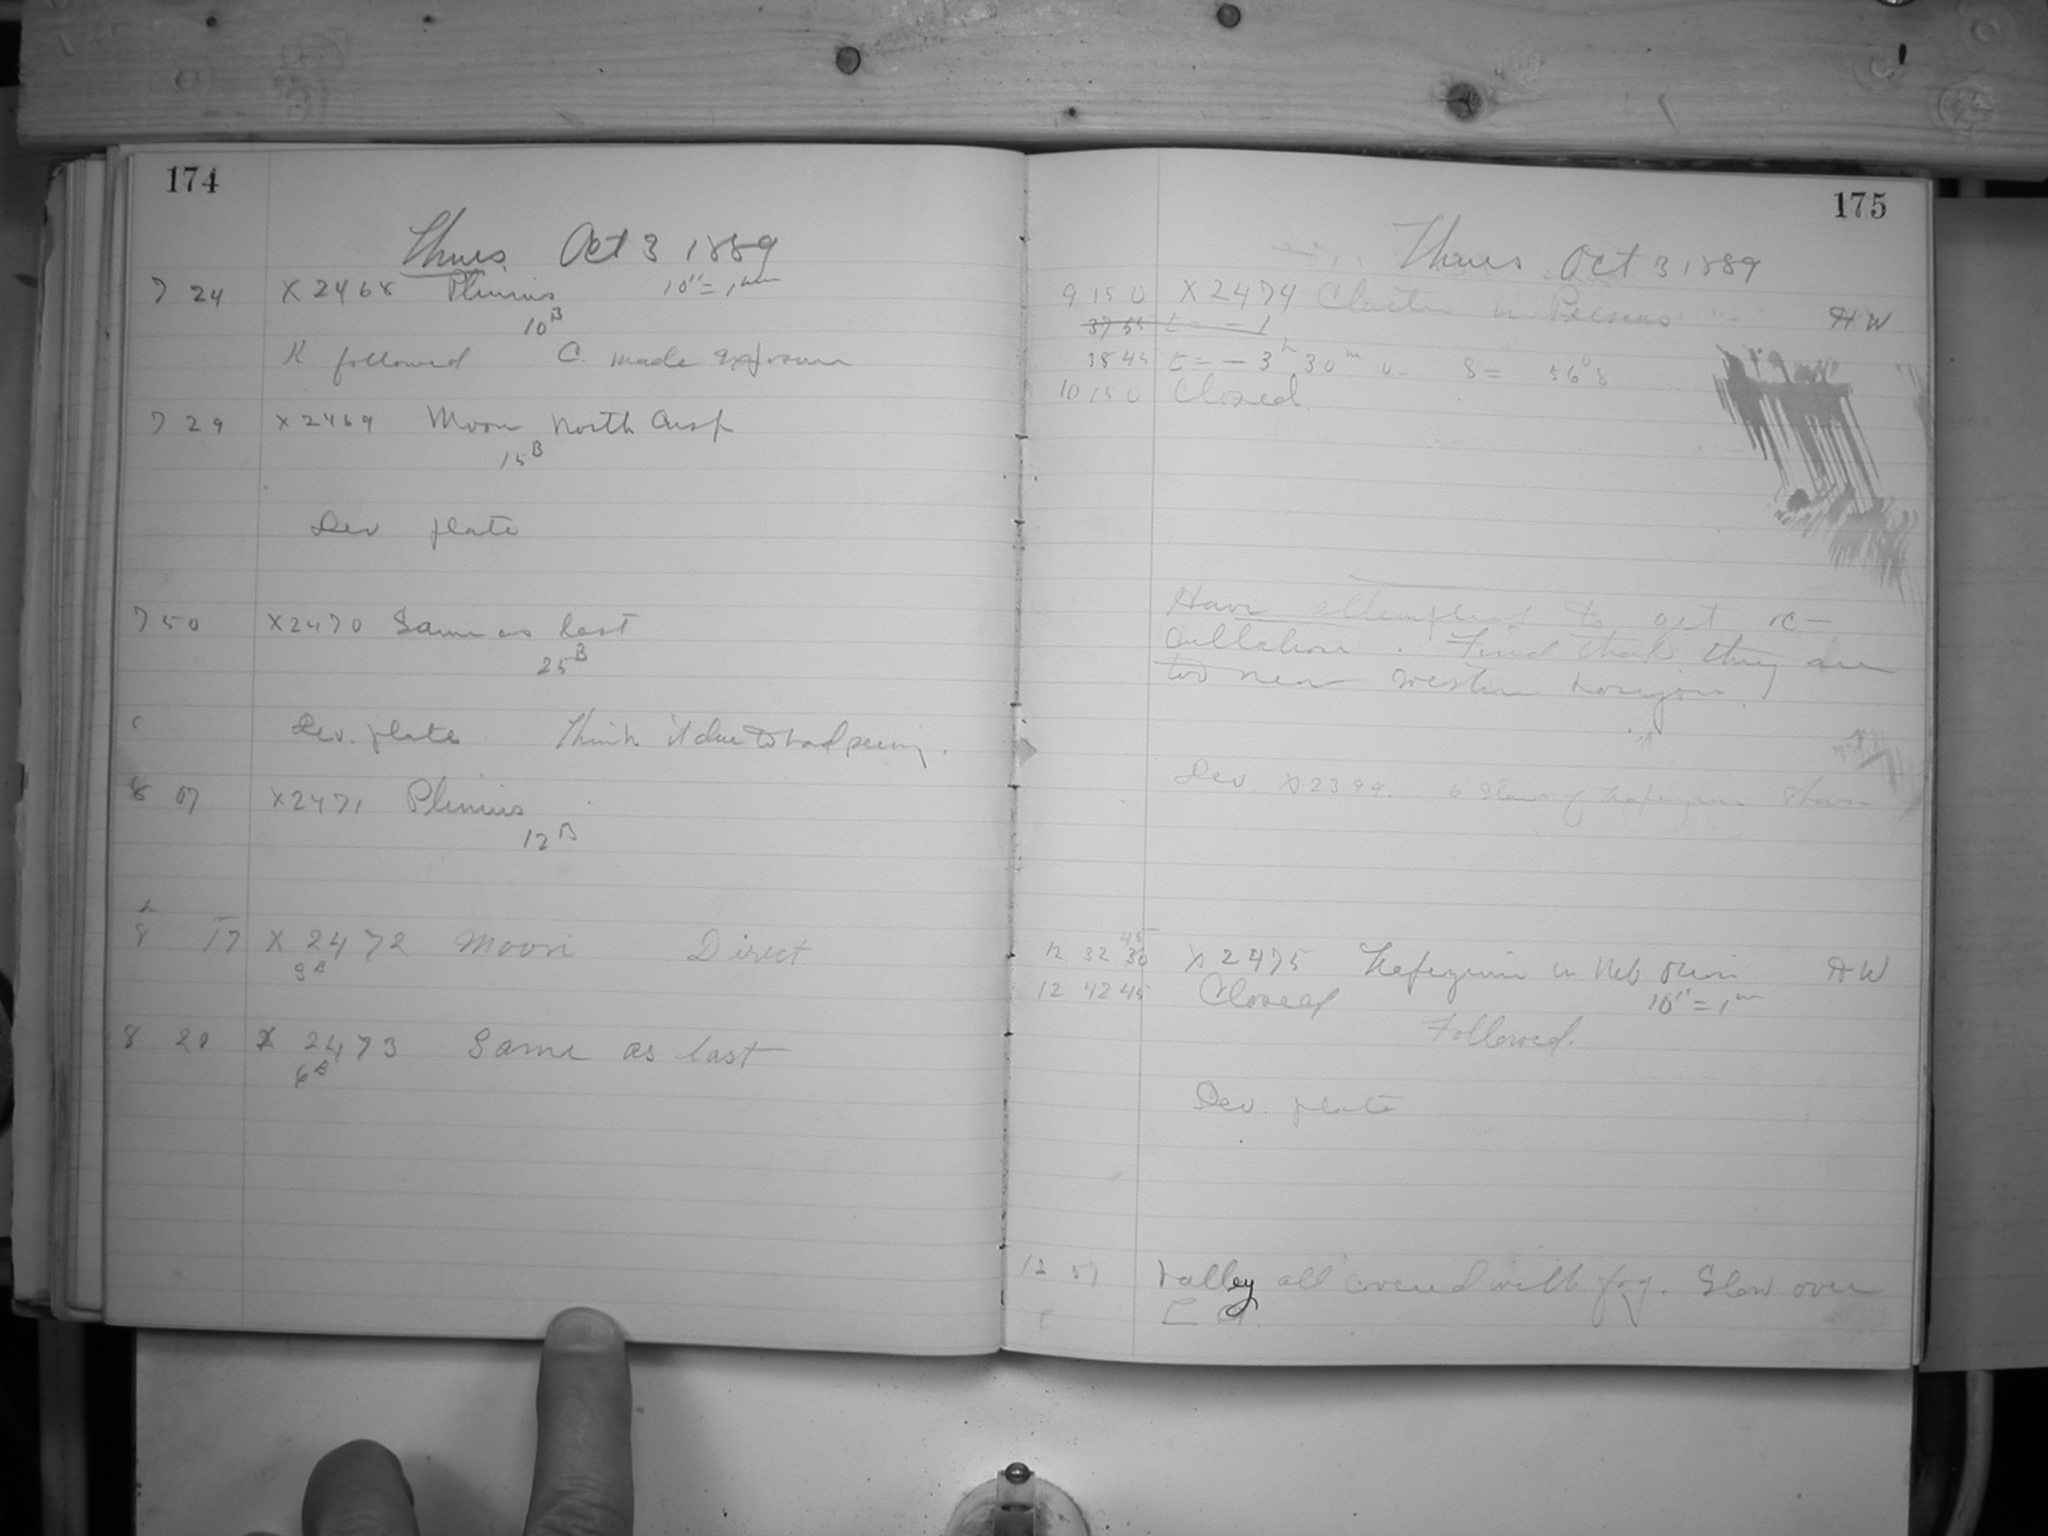 174
Thurs. Oct 3 1889
7 24 X 2468 Plinius 10" = 1mm
10B
K followed C. made exposure
7 29 X 2469 Moon North Cusp
15B
Dev plate
7 50 X 2470 Same as last
25B
Dev. plate Think it due to bad seeing.
8 07 X 2471 Plinius
12B
8h 17 X 2472 Moon Direct
9B
8 20 X 2473 Same as last
6B
175
Thurs Oct 3 1889
9 15 0 X 2474 Cluster in Perseus HW
37 55 t = - 1
38 45 t = - 3h 30m 0 δ = 56° 8
10 15 0 Closed.
Have attempted to get oc-
cultation. Find that they are
too near western horizon
Dev. X 2399. 6 stars of Trapezium shown
45
12 32 30 X 2475 Trapezium in Neb Orion HW
12 42 45 Closed 10" = 1mm
Followed.
Dev. plate
12 57 Valley all covered with fog. Glow over
L A.